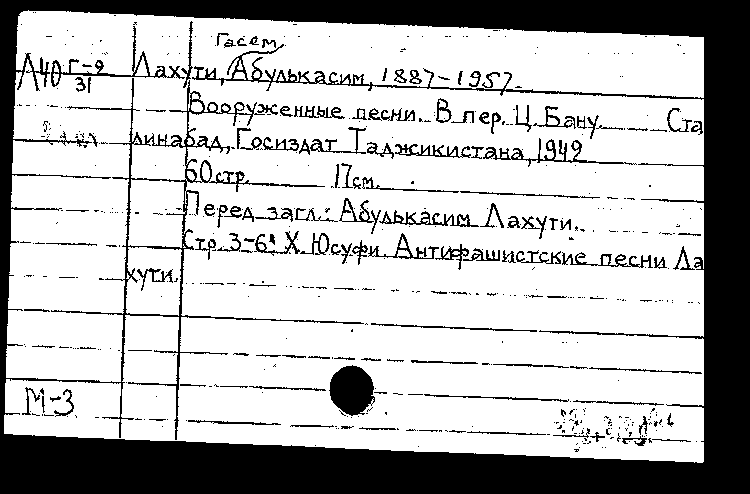 Гасем
Л40 Г-9 Лахути, Абулькасим, 1887-1957.
31
Вооруженные песни. В пер. Ц. Бану. Ста
линабад, Госиздат Таджикистана, 1942
60 стр. 17 см.
Перед загл.: Абулькасим Лахути.
Стр. 3-6: Х. Юсуфи. Антифашистские песни Ла
хути.
М-3